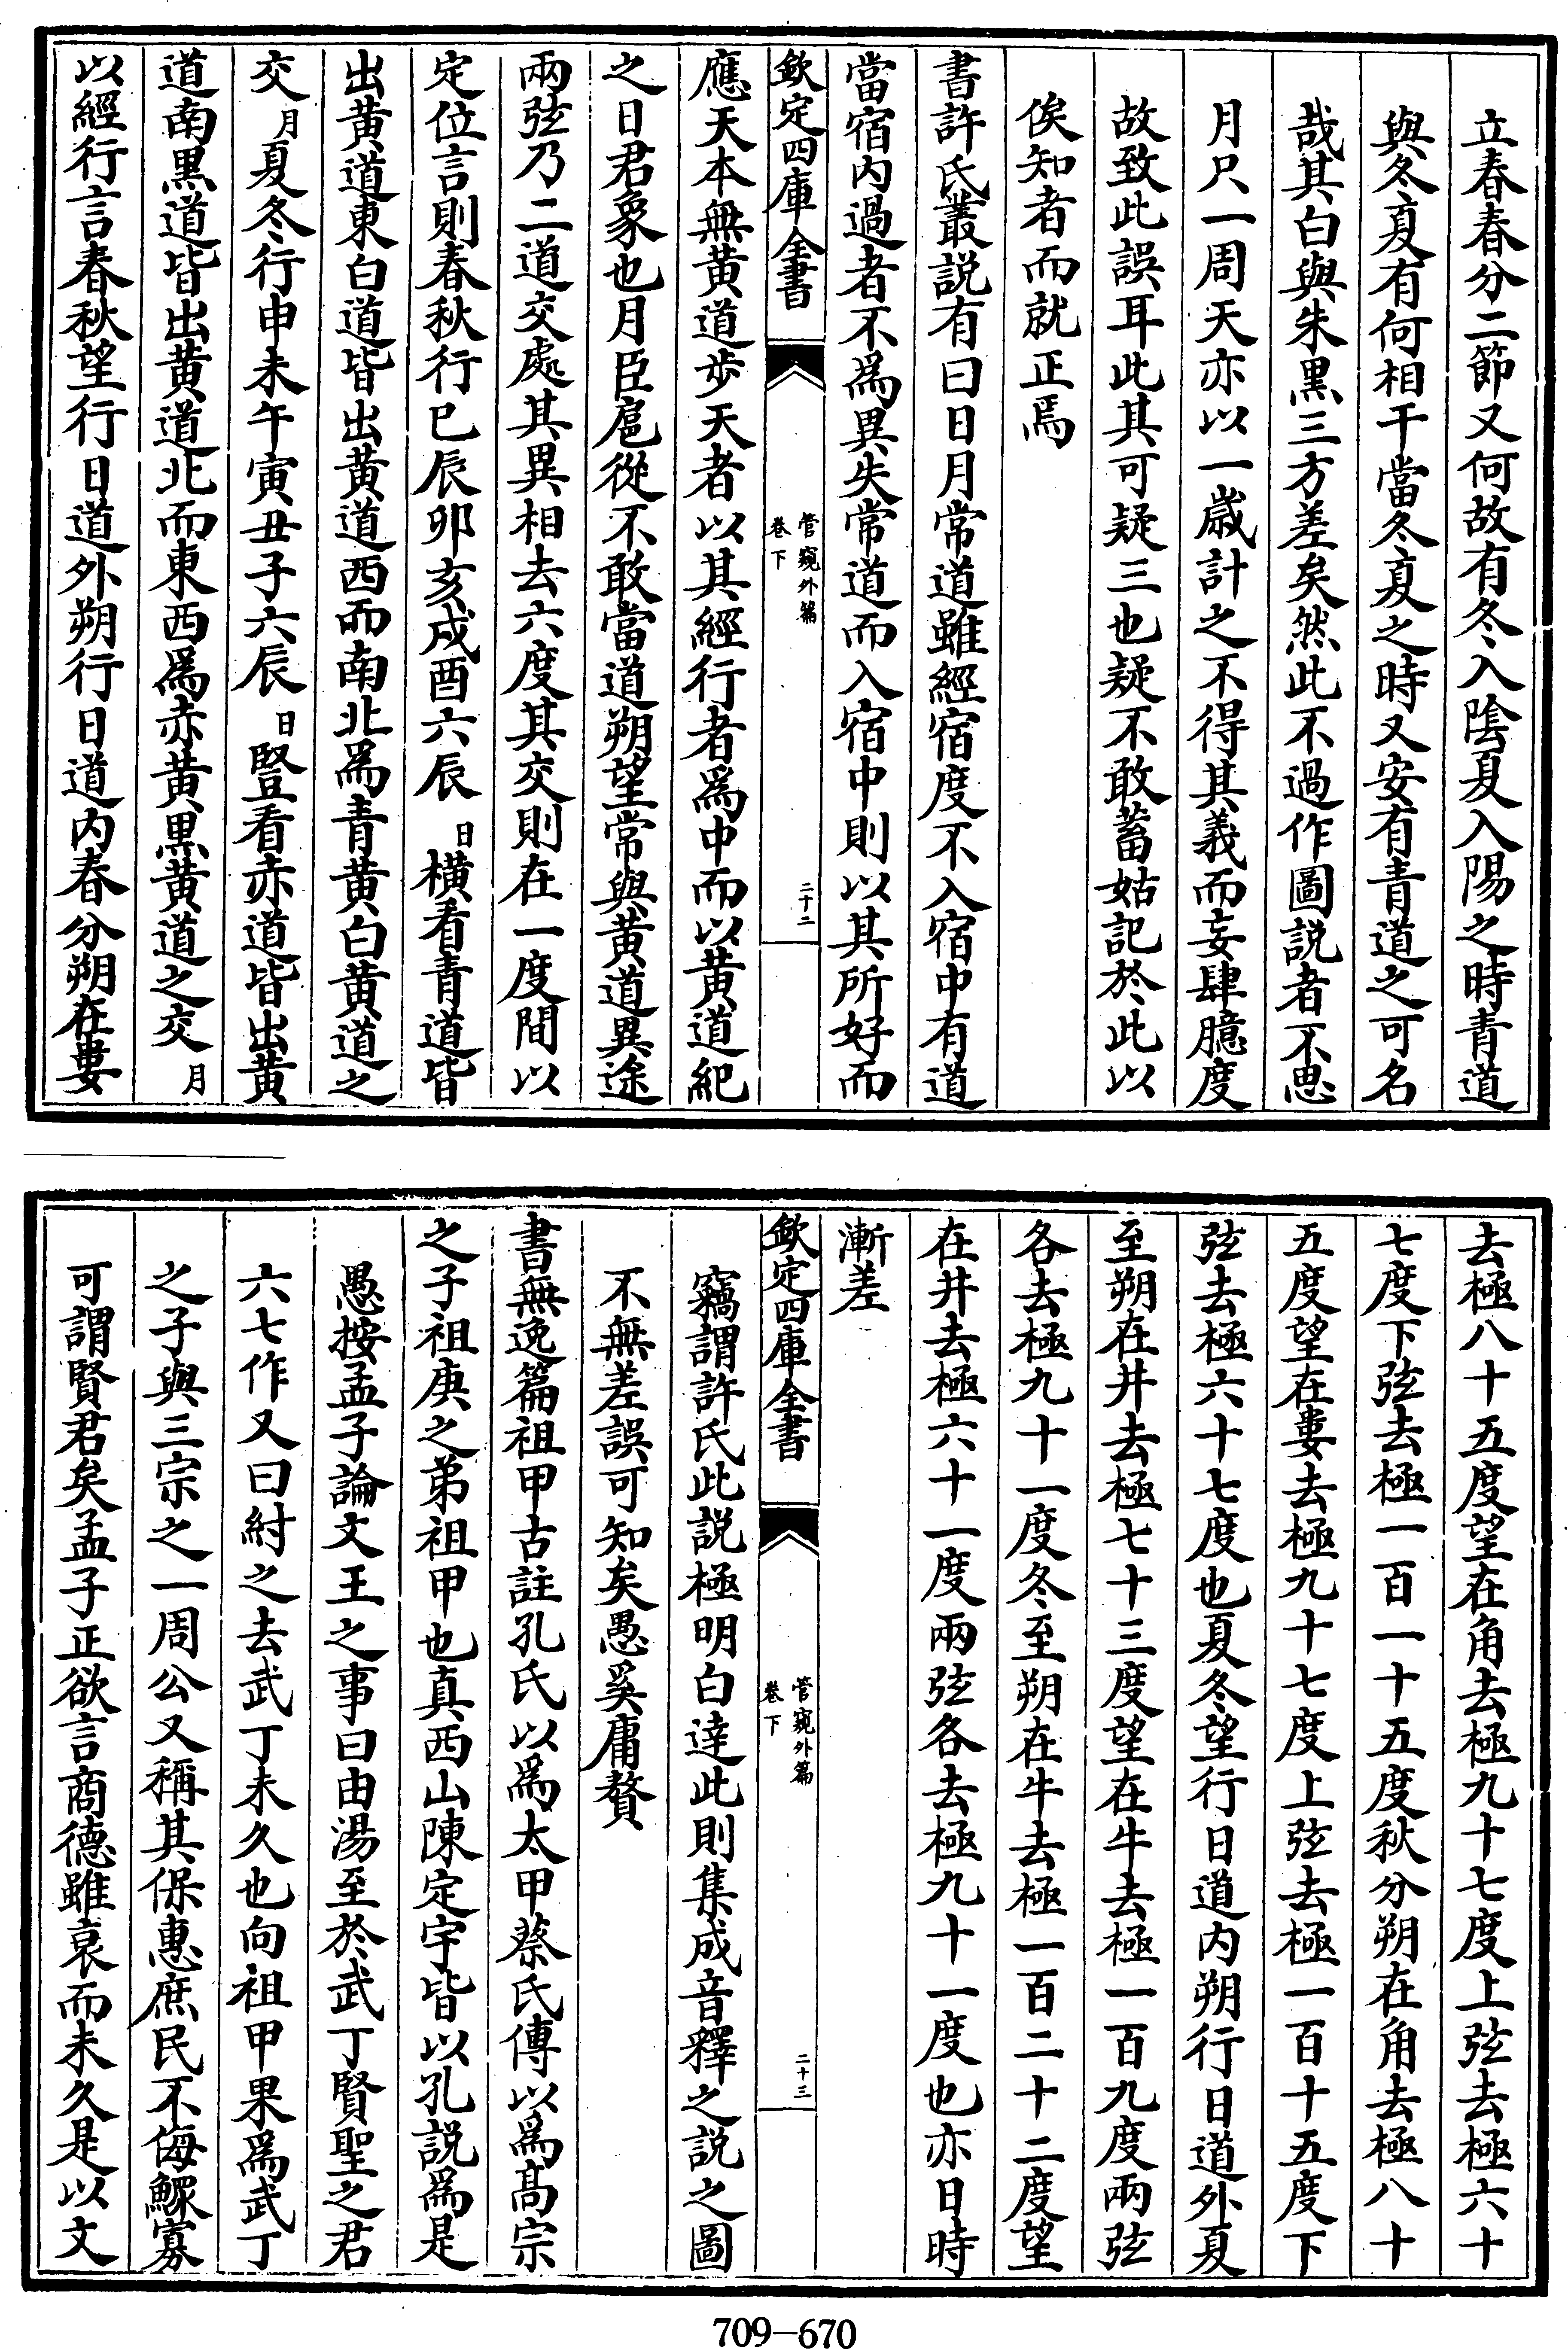 立春春分二節又何故有冬入陰夏入陽之時青道
與冬夏有何相干當冬夏之時又安有青道之可名
哉其白與朱黒三方差矣然此不過作圖説者不思
月只一周天亦以一歳計之不得其義而妄肆臆度
故致此誤耳此其可疑三也疑不敢蓄姑記於此以
俟知者而就正焉
書許氏叢説有曰日月常道雖經宿度不入宿中有道
當宿内過者不為異失常道而入宿中則以其所好而
欽定四庫全書
管窺外篇
卷下
二十二
應天本無黄道歩天者以其經行者為中而以黄道紀
之日君象也月臣扈從不敢當道朔望常與黄道異途
兩弦乃二道交處其異相去六度其交則在一度間以
定位言則春秋行巳辰卯亥戌酉六辰日横看青道皆
出黄道東白道皆出黄道西而南北為青黄白黄道之
交月夏冬行申未午寅丑子六辰日豎看赤道皆出黄
道南黒道皆出黄道北而東西為赤黄黒黄道之交月
以經行言春秋望行日道外朔行日道内春分朔在婁
去極八十五度望在角去極九十七度上弦去極六十
七度下弦去極一百一十五度秋分朔在角去極八十
五度望在婁去極九十七度上弦去極一百十五度下
弦去極六十七度也夏冬望行日道内朔行日道外夏
至朔在井去極七十三度望在牛去極一百九度兩弦
各去極九十一度冬至朔在牛去極一百二十二度望
在井去極六十一度兩弦各去極九十一度也亦日時
漸差
欽定四庫全書
管窺外篇
卷下
二十三
竊謂許氏此説極明白逹此則集成音釋之説之圖
不無差誤可知矣愚奚庸贅
書無逸篇祖甲古註孔氏以為太甲蔡氏傳以為髙宗
之子祖庚之弟祖甲也真西山陳定宇皆以孔説為是
愚按孟子論文王之事曰由湯至於武丁賢聖之君
六七作又曰紂之去武丁未久也向祖甲果為武丁
之子與三宗之一周公又稱其保惠庶民不侮鰥寡
可謂賢君矣孟子正欲言商德雖衰而未久是以文
709—670